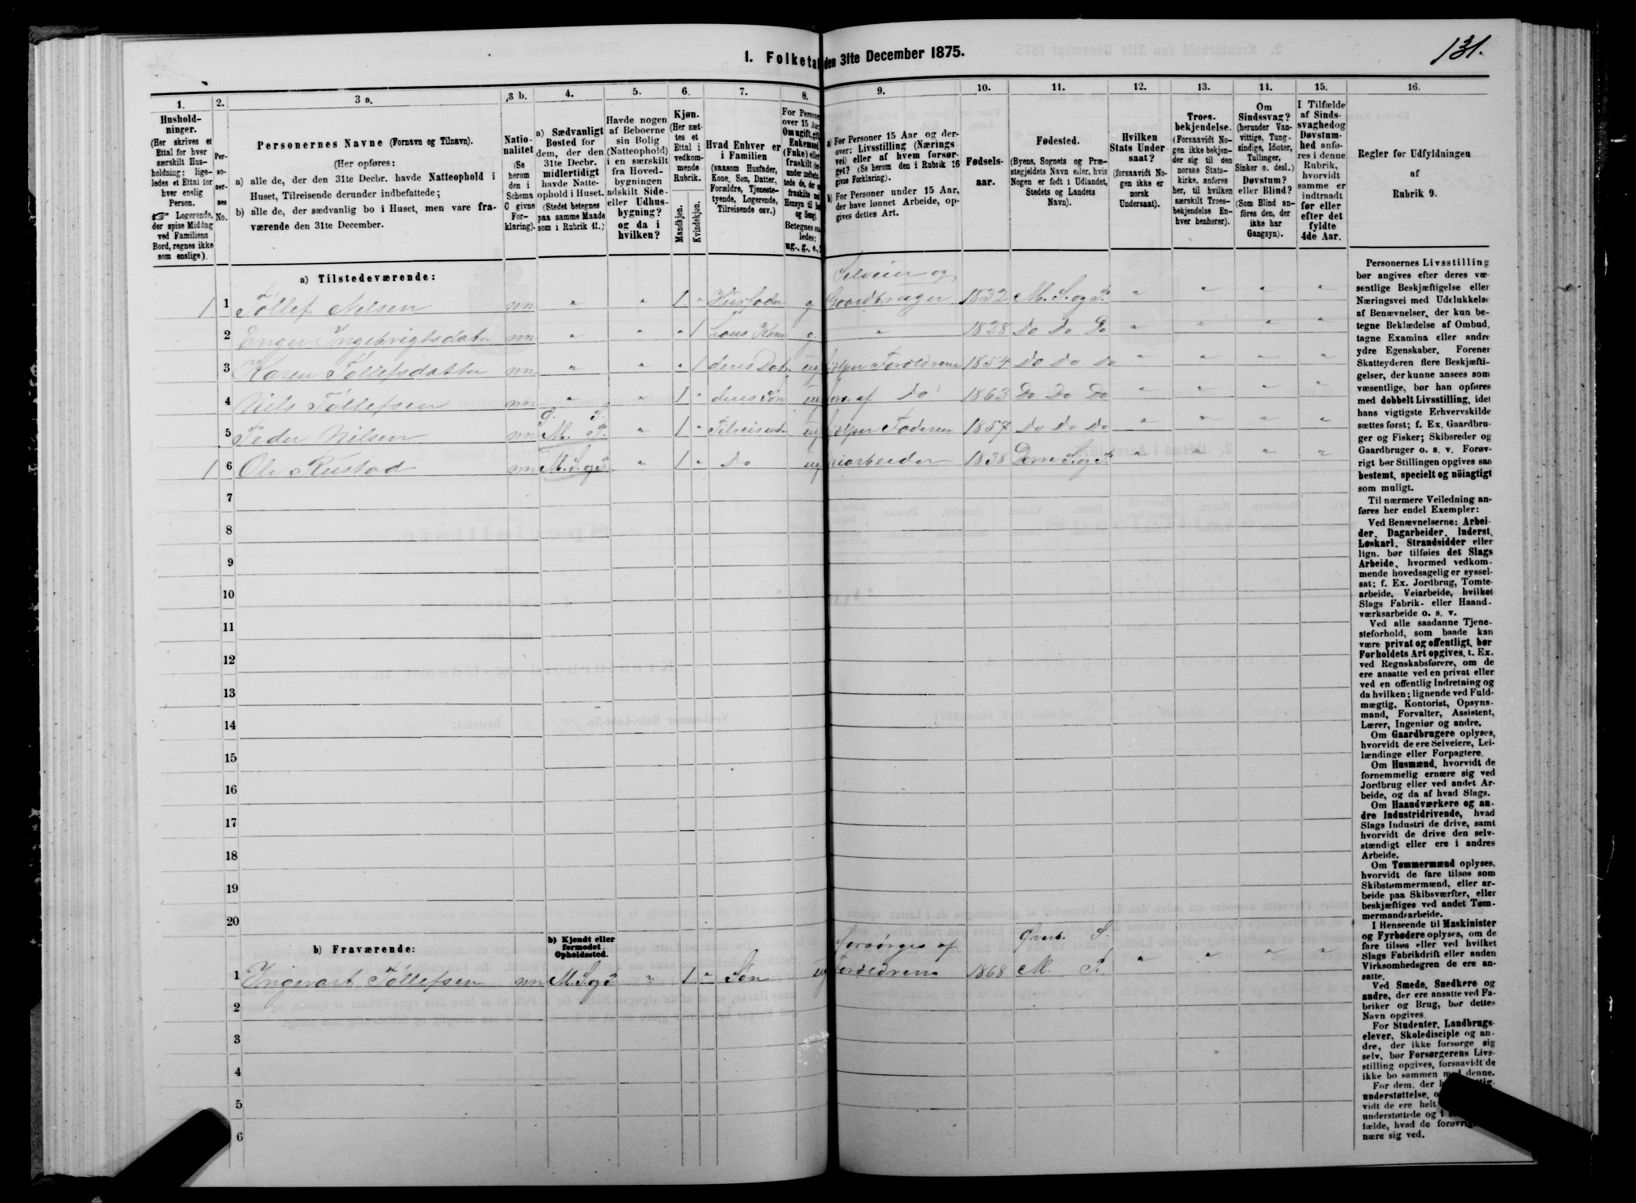 131.
1. Folketal den 31te December 1875.
1.
Hushold-
ninger.
(Her skrives et
Ettal for hver
særskilt Hus-
holdning; lige-
ledes et Ettal for
hver enslig
Person.
☞ Logerende,
der spise Middag
ved Familiens
Bord, regnes ikke
som enslige).
2.
Per-
so-
ner-
nes
No.
3 a.
Personernes Navne (Fornavn og Tilnavn).
(Her opføres:
a) alle de, der den 31te Decbr. havde Natteophold i
Huset, Tilreisende derunder indbefattede;
b) alle de, der sædvanlig bo i Huset, men vare fra-
værende den 31te December.
3 b.
Natio-
nalitet
(Se
herom
den i
Schema
C givne
For-
klaring).
4.
a) Sædvanligt
Bosted for
dem, der den
31te Decbr.
midlertidigt
havde Natte-
ophold i Huset.
(Stedet betegnes
paa samme Maade
som i Rubrik 11.)
5.
Havde nogen
af Beboerne
sin Bolig
(Natteophold)
i en særskilt
fra Hoved-
bygningen
adskilt Side-
eller Udhus-
bygning?
og da i
hvilken?
6.
Kjøn.
(Her sæt-
tes et
Ettal i
vedkom-
mende
Rubrik.
Mandkjøn.
Kvindekjøn.
7.
Hvad Enhver er
i Familien
(saasom Husfader,
Kone, Søn, Datter,
Forældre, Tjeneste-
tyende, Logerende,
Tilreisende osv.)
8.
For Personer
over 15 Aar
Om ugift, gift,
Enkemand
(Enke) eller
fraskilt
Betegnes saa-
ledes:
ug., g., e.,
9.
a) For Personer 15 Aar og der-
over: Livsstilling (Nærings-
vei) eller af hvem forsør-
get? (Se herom den i Rubrik 16
givne Forklaring).
b) For Personer under 15 Aar,
der have lønnet Arbeide, op-
gives dettes Art.
10.
Fødsels-
aar.
11.
Fødested.
(Byens, Sognets og Præ-
stegjeldets Navn eller, hvis
Nogen er født i Udlandet,
Stedets og Landets
Navn).
12.
Hvilken
Stats Under-
saat?
(forsaavidt No-
gen ikke er
norsk
Undersaat).
13.
Troes-
bekjendelse.
(Forsaavidt No-
gen ikke bekjen-
der sig til den
norske Stats-
kirke, anføres
her, til hvilken
særskilt Troes-
bekjendelse En-
hver henhører).
11.
Om
Sindssvag?
(herunder Van-
vittige, Tung-
sindige, Idioter,
Tullinger,
Sinker o. desl.)
Døvstum?
eller Blind?
(Som Blind an-
føres den, der
ikke har
Gangsyn).
15.
I Tilfælde
af Sinds-
svaghed og
Døvstum-
hed anfø-
res i denne
Rubrik,
hvorvidt
samme er
indtraadt
før eller
efter det
fyldte
4de Aar.
16.
Regler for Udfyldningen
af
Rubrik 9.
a) Tilstedeværende:
1 1 Tollef Nilsen nn " " 1 " Husfader g Selveier og Gaardbruger 1832 M. S. og P. " " " "
2 Enger Ingebrigtsdatter nn " " " 1 hans Kone g. " 1828 Do Do Do " " " "
3 Karen Tollefsdatter nn " " " 1 deres Datt. ug hjelper Forældrene 1854 Do Do Do " " " "
4 Nils Tollefsen nn " " 1 " deres Søn ug fors. af Do 1863 Do Do Do " " " "
5 Peder Nilsen nn G. S. M. P. " 1 " Tilreisende ug hjelper Faderen 1857 Do Do Do " " " "
1 6 Ole Rustad nn M. S. og P. " 1 " Do ug Veiarbeider 1838 Dovre S. og P. " " " "
7
8
9
10
11
12
13
14
15
16
17
18
19
20
b) Fraværende:
b) Kjendt eller
formodet
Opholdssted.
1 Ingevart Tollefsen nn M. S. og P. " 1 " Søn ug Forsørges af Forældrene 1868 Grub. S. M. P. " " " "
2
3
4
5
6
Personernes Livsstilling
bør angives efter deres væ-
sentlige Beskjæftigelse eller
Næringsvei med Udelukkelse
af Benævnelser, der kun be-
tegne Beklædelse af Ombud,
tagne Examina eller andre
ydre Egenskaber. Forener
Skatteyderen flere Beskjæfti-
gelser, der kunne ansees som
væsentlige, bør han opføres
med dobbelt Livsstilling, idet
hans vigtigste Erhvervskilde
sættes først; f. Ex. Gaardbru-
ger og Fisker; Skibsreder og
Gaardbruger o. s. v. Forøv-
rigt bør Stillingen opgives saa
bestemt, specielt og nöiagtigt
som muligt.
Til nærmere Veiledning an-
føres her endel Exempler:
Ved Benævnelserne: Arbei-
der, Dagarbeider, Inderst,
Løskarl, Strandsidder eller
lign. bør tilføies det Slags
Arbeide, hvormed vedkom-
mende hovedsagelig er syssel-
sat; f. Ex. Jordbrug, Tomte-
arbeide, Veiarbeide, hvilket
Slags Fabrik- eller Haand-
værksarbeide o. s. v.
Ved alle saadanne Tjene-
steforhold, som baade kan
være privat og offentligt, bør
Forholdets Art opgives, t. Ex.
ved Regnskabsførere, om de
ere ansatte ved en privat eller
ved en offentlig Indretning og
da hvilken; lignende ved Fuld-
mægtig, Kontorist, Opsyns-
mand, Forvalter, Assistent,
Lærer, Ingeniør og andre.
Om Gaardbrugere oplyses,
hvorvidt de ere Selveiere, Lei-
lændinge eller Forpagtere.
Om Husmænd, hvorvidt de
fornemmelig ernære sig ved
Jordbrug eller ved andet Ar-
beide, og da af hvad Slags.
Om Haandværkere og an-
dre Industridrivende, hvad
Slags Industri de drive, samt
hvorvidt de drive den selv-
stændigt eller ere i andres
Arbeide.
Om Tømmermænd oplyses,
hvorvidt de fare tilsøs som
Skibstømmermænd, eller ar-
beide paa Skibsværfter, eller
beskjæftiges ved andet Tøm-
mermandsarbeide.
I Henseende til Maskinister
og Fyrbødere oplyses, om de
fare tilsøs eller ved hvilket
Slags Fabrikdrift eller anden
Virksomhedsgren de ere an-
satte.
Ved Smede, Snedkere og
andre, der ere ansatte ved Fa-
briker og Brug, bør dettes
Navn opgives.
For Studenter, Landbrugs-
elever, Skoledisciple og an-
dre, der ikke forsørge sig
selv, bør Forsørgerens Livs-
stilling opgives, forsaavidt de
ikke bo sammen med denne.
For dem, der
understøttelse,
vidt de ere helt
understøttede og i
fælde, hvad de forøvrigt
nære sig ved.